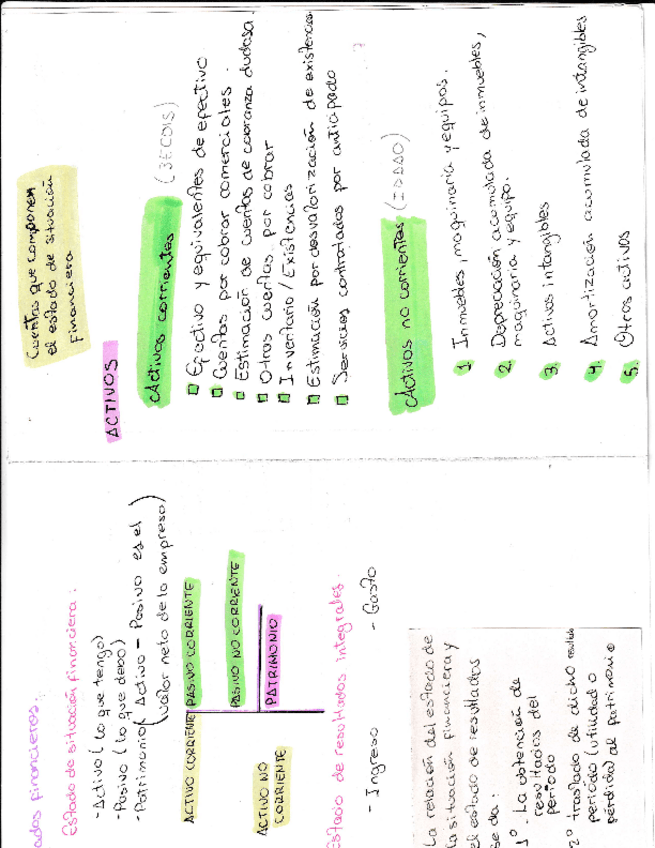 ados financieros.
Estado de situación financiera:
- Activo (lo que tengo)
- Pasivo (lo que debo)
- Patrimonio ( Activo - Pasivo es el
valor neto de la empresa)
ACTIVO CORRIENTE PASIVO CORRIENTE
PASIVO NO CORRIENTE
ACTIVO NO
CORRIENTE
PATRIMONIO
Estado de resultados integrales.
- Ingreso - Gasto
La relación del estado de
la situación financiera y
el estado de resultados
se da:
1° La obtención de
resultados del
periodo
2° traslado de dicho
periodo (utilidad o
pérdida) al patrimonio
Cuentas que componen
el estado de situación
financiera
ACTIVOS
Activos corrientes
Efectivo y equivalentes de efectivo
Cuentas por cobrar comerciales.
Estimación de cuentas de cobranza dudosa
Otras cuentas por cobrar
Inventario / Existencias
Estimación por desvalorización de existencias
Servicios contratados por anticipado
Activos no corrientes (IDAAO)
1. Inmuebles, maquinaria y equipos.
2. Depreciación acumulada de inmuebles,
maquinaria y equipo.
3. Activos intangibles
4. Amortización acumulada de intangibles
5. Otros activos